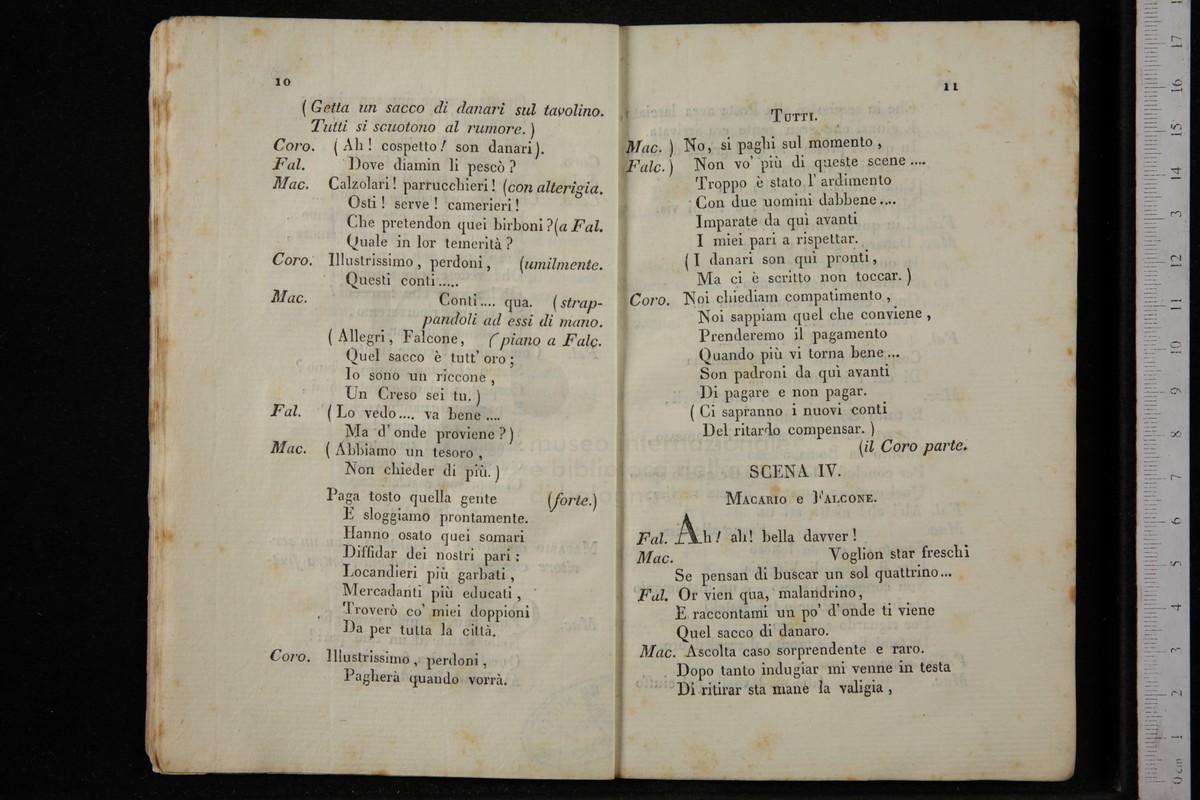 10
(Getta un sacco di danari sul tavolino.
Tutti si scuotono al rumore.)
Coro. (Ah! cospetto! son danari).
Fal. Dove diamin li pescò?
Mac. Calzolari! parrucchieri! (con alterigia.
Osti! serve! camerieri!
Che pretendon quei birboni?(a Fal.
Quale in lor temerità?
Coro. Illustrissimo, perdoni, (umilmente.
Questi conti.....
Mac. Conti.... qua. (strap-
pandoli ad essi di mano.
(Allegri, Falcone, (piano a Falc.
Quel sacco è tutt' oro;
Io sono un riccone,
Un Creso sei tu.)
Fal. (Lo vedo.... va bene....
Ma d' onde proviene?)
Mac. (Abbiamo un tesoro,
Non chieder di più.)
Paga tosto quella gente (forte.)
E sloggiamo prontamente.
Hanno osato quei somari
Diffidar dei nostri pari:
Locandieri più garbati,
Mercadanti più educati,
Troverò co' miei doppioni
Da per tutta la città.
Coro. Illustrissimo, perdoni,
Pagherà quando vorrà.
11
TUTTI.
Mac. ) No, si paghi sul momento,
Falc.) Non vo' più di queste scene....
Troppo è stato l' ardimento
Con due uomini dabbene....
Imparate da quì avanti
I miei pari a rispettar.
(I danari son quì pronti,
Ma ci è scritto non toccar.)
Coro. Noi chiediam compatimento,
Noi sappiam quel che conviene,
Prenderemo il pagamento
Quando più vi torna bene...
Son padroni da quì avanti
Di pagare e non pagar.
(Ci sapranno i nuovi conti
Del ritardo compensar.)
(il Coro parte.
SCENA IV.
MACARIO e FALCONE.
Fal. Ah! ah! bella davver!
Mac. Voglion star freschi
Se pensan di buscar un sol quattrino...
Fal. Or vien qua, malandrino,
E raccontami un po' d'onde ti viene
Quel sacco di danaro.
Mac. Ascolta caso sorprendente e raro.
Dopo tanto indugiar mi venne in testa
Di ritirar sta mane la valigia,